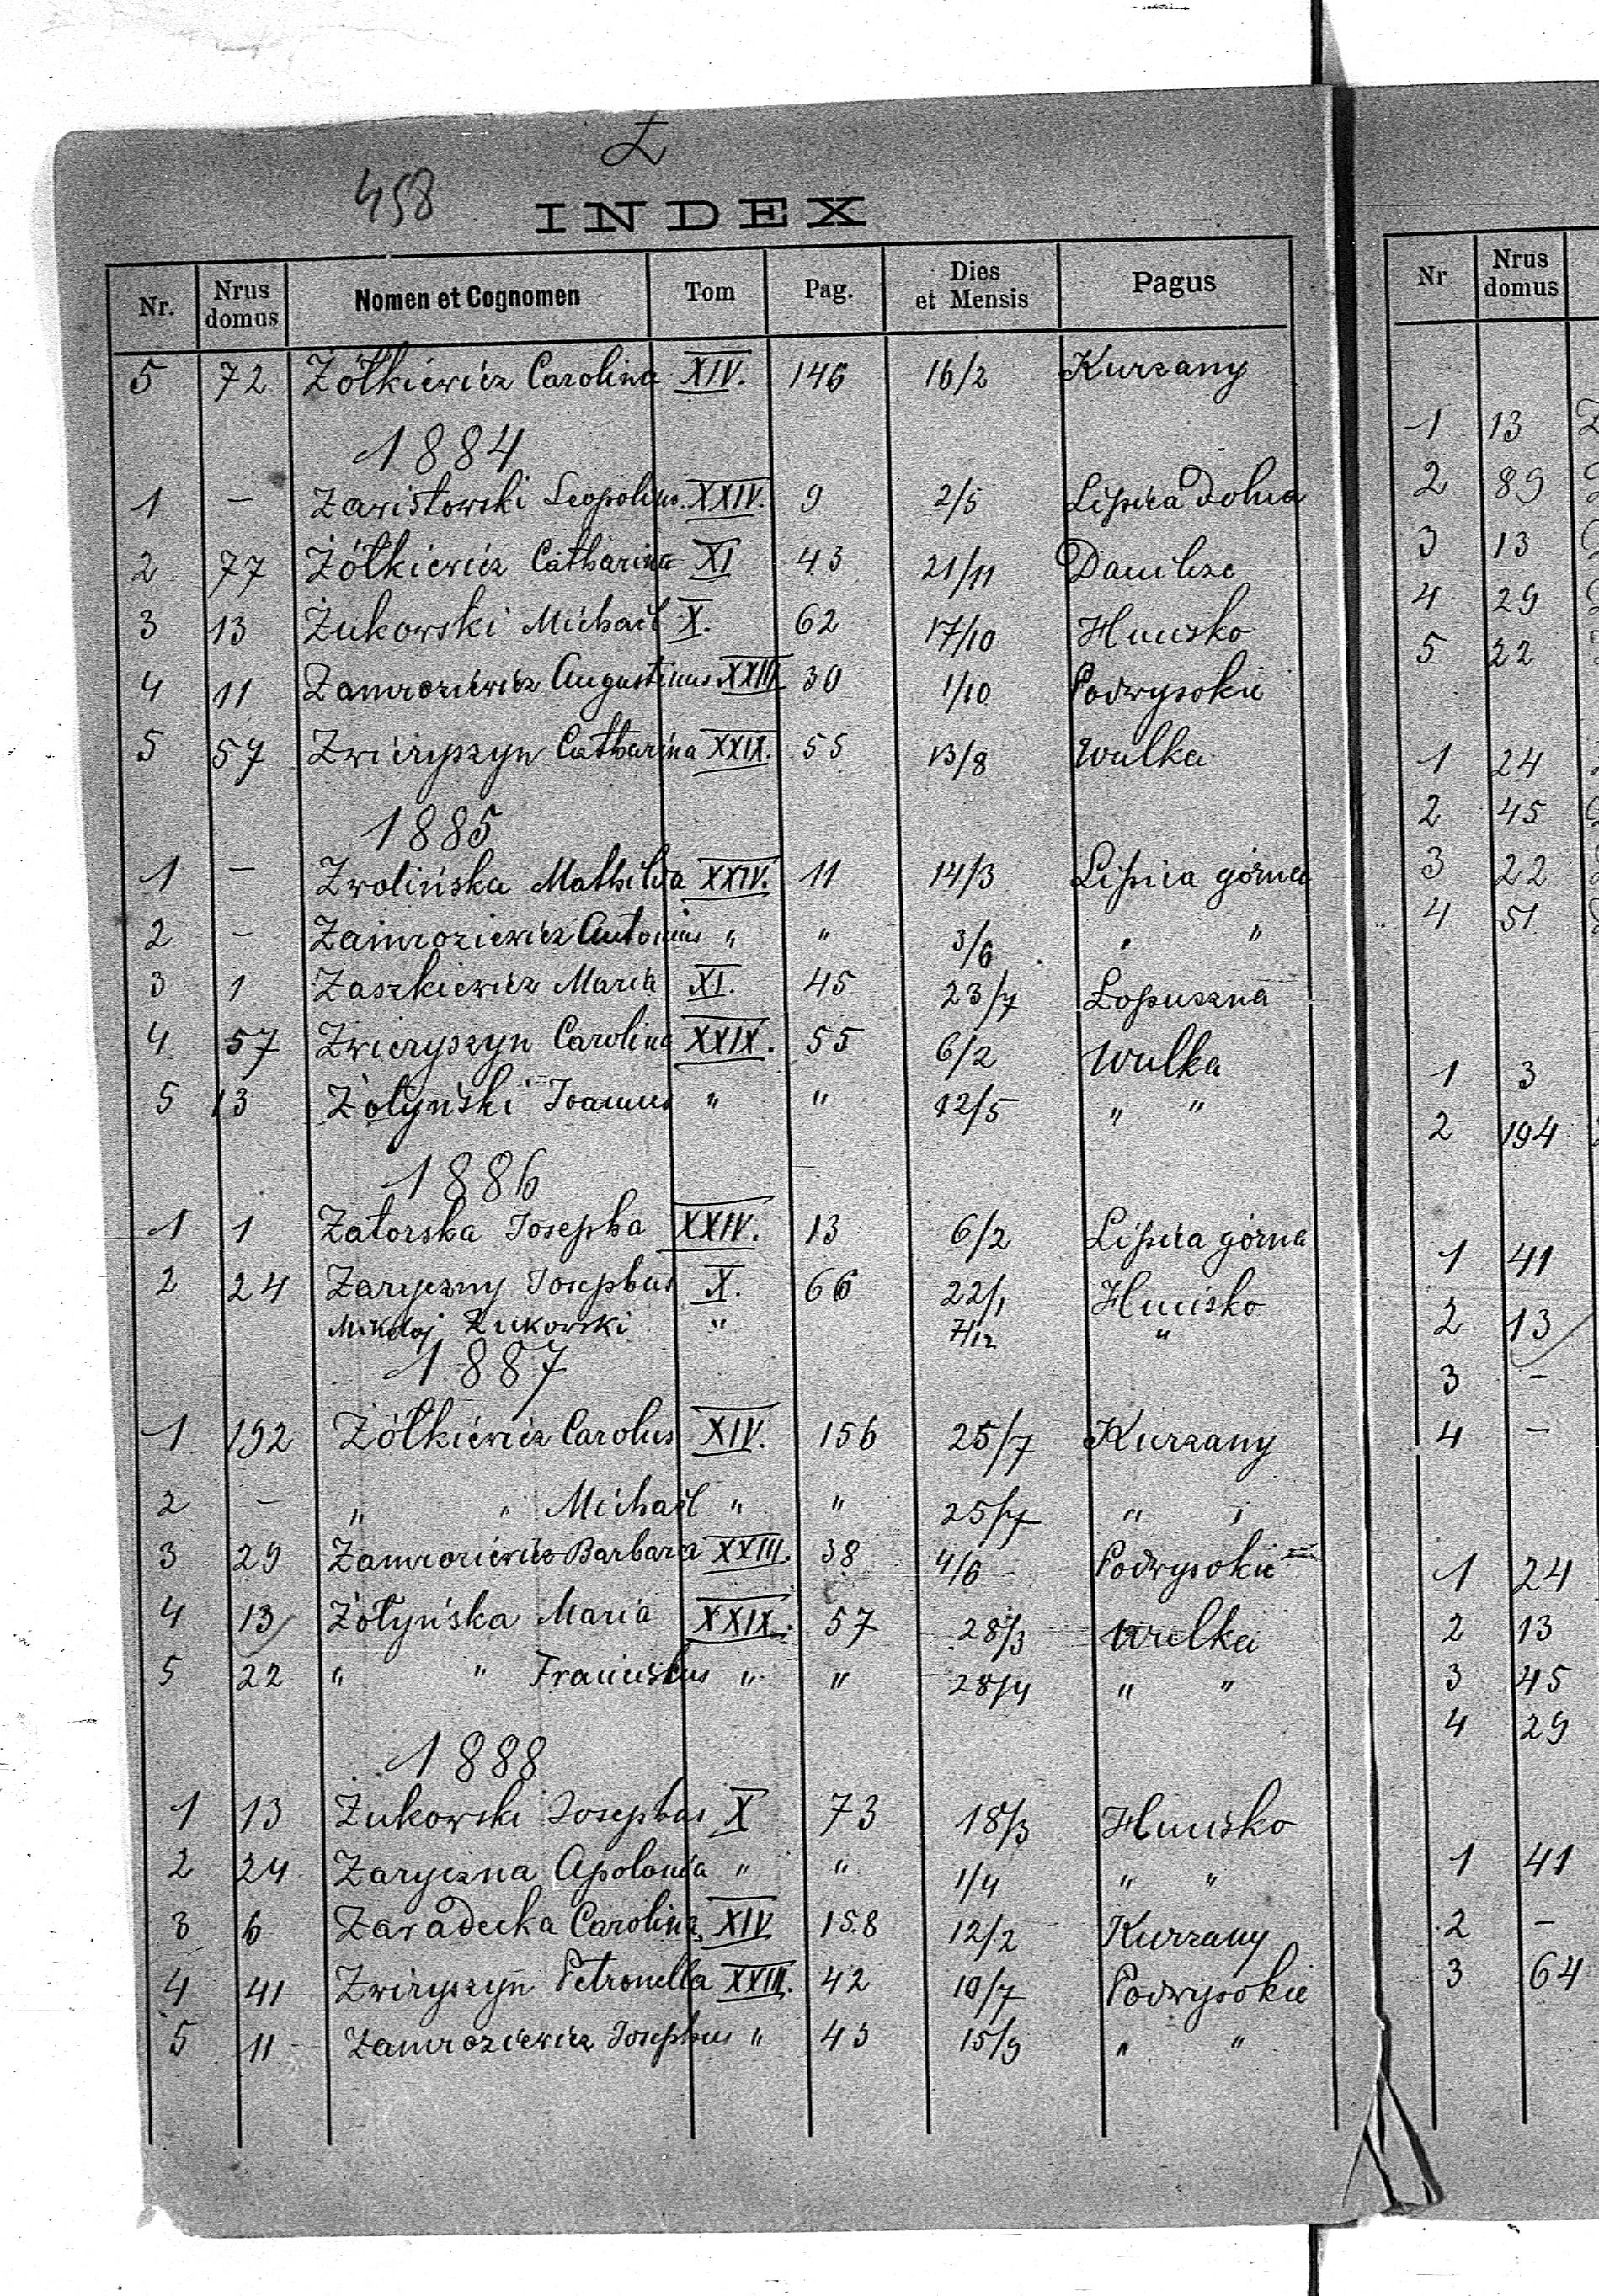 Z
458
INDEX
Nr. Nrus domus Nomen et Cognomen Tom Pag. Dies et Mensis Pagus
5 72 Żółkiewicz Carolina XIV. 146 16/2 Kurzany
1884
1 – Zawistowski Leopoldus XXIV. 9 2/5 Lipica dolna
2 77 Żółkiewicz Catharina XI 43 21/11 Danilcze
3 13 Żukowski Michaël X. 62 17/10 Hucisko
4 11 Zamroziewicz Augustinus XXIII 30 1/10 Podwysokie
5 57 Zwieryszyn Catharina XXIX. 55 13/8 Wulka
1885
1 – Zwolińska Mathilda XXIV. 11 14/3 Lipica górna
2 – Zamroziewicz Antonius " " 3/6 " "
3 1 Zaszkiewicz Maria XI. 45 23/7 Lopuszna
4 57 Zwieryszyn Carolina XXIX. 55 6/2 Wulka
5 13 Żołyński Joannes " " 12/5 " "
1886
1 1 Zatorska Josepha XXIV. 13 6/2 Lipica górna
2 24 Zaryczny Josephus X. 66 22/1 Hucisko
Mikołaj Żukowski " 7/12 "
1887
1 192 Żółkiewicz Carolus XIV. 156 25/7 Kurzany
2 – " " Michaël " " 25/7 " "
3 29 Zamroziewicz Barbara XXIII. 38 4/6 Podwysokie
4 13 Żołyńska Maria XXIX. 57 28/3 Wulka
5 22 " " Franciscus " " 28/4 " "
1888
1 13 Żukowski Josephus X 73 18/3 Hucisko
2 24 Zaryczna Apolonia " " 1/4 " "
3 6 Zawadecka Carolina XIV 158 12/2 Kurzany
4 41 Zwiryszyn Petronella XXIII. 42 10/7 Podwysokie
5 11 Zamroziewicz Josephus " 43 15/9 " "
Nr Nrus domus
1 13
2 89
3 13
4 29
5 22
1 24
2 45
3 22
4 51
1 3
2 194
1 41
2 13
3 –
4 –
1 24
2 13
3 45
4 29
1 41
2 –
3 64